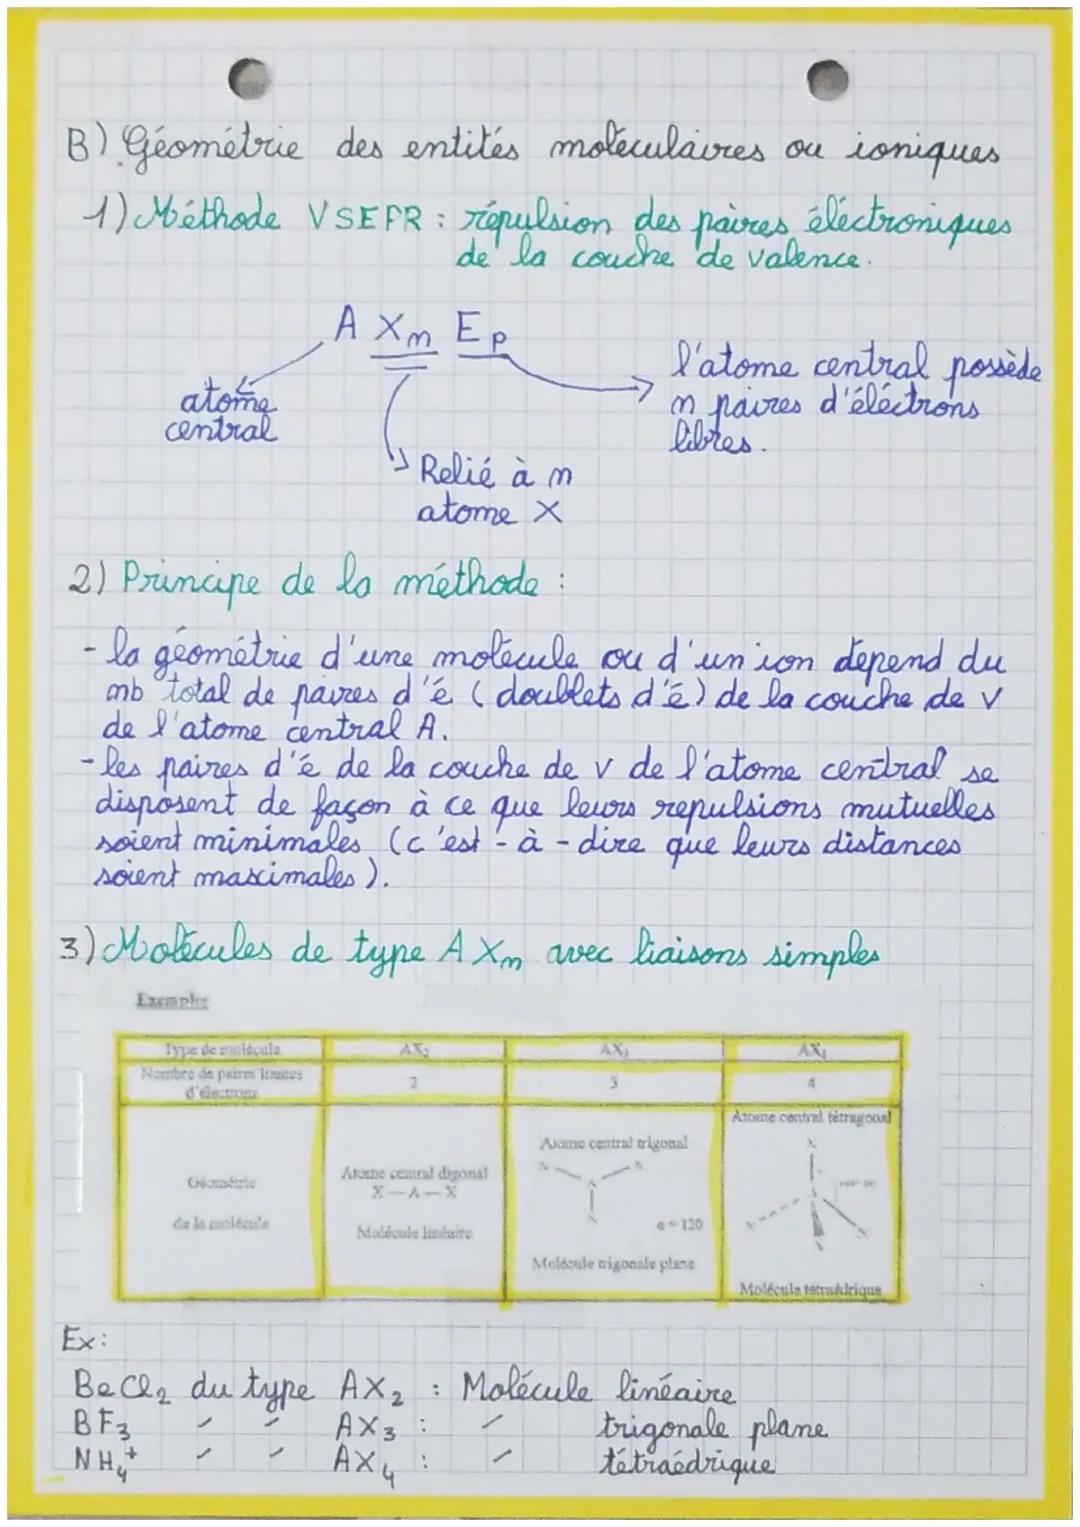 B) Géométrie des entités moléculaires ou ioniques
1) Méthode VSEPR : répulsion des paires électroniques
de la couche de valence.
A Xn Ep
atome
central
l'atome central possède
n paires d'éléctrons
libres.
Relié à n
atome X
2) Principe de la méthode :
- la géométrie d'une molécule ou d'un ion dépend du
nb total de paires d'é (doublets d'é) de la couche de v
de l'atome central A.
- les paires d'é de la couche de v de l'atome central se
disposent de façon à ce que leurs repulsions mutuelles
soient minimales (c'est-à-dire que leurs distances
soient maximales).
3) Molécules de type AXn avec liaisons simples
Exemples
Type de molécule AX2 AX3 AX4
Nombre de paires liantes
d'électrons 2 3 4
Géométrie
de la molécule
Atome central digonal
X — A — X
Molécule linéaire
Atome central trigonal
X X
A
X
α = 120
Molécule trigonale plane
Atome central tétragonal
X
Molécule tétraédrique
Ex:
BeCl2 du type AX2 : Molécule linéaire
BF3 " " AX3 : " trigonale plane
NH4+ " " AX4 : " tétraédrique